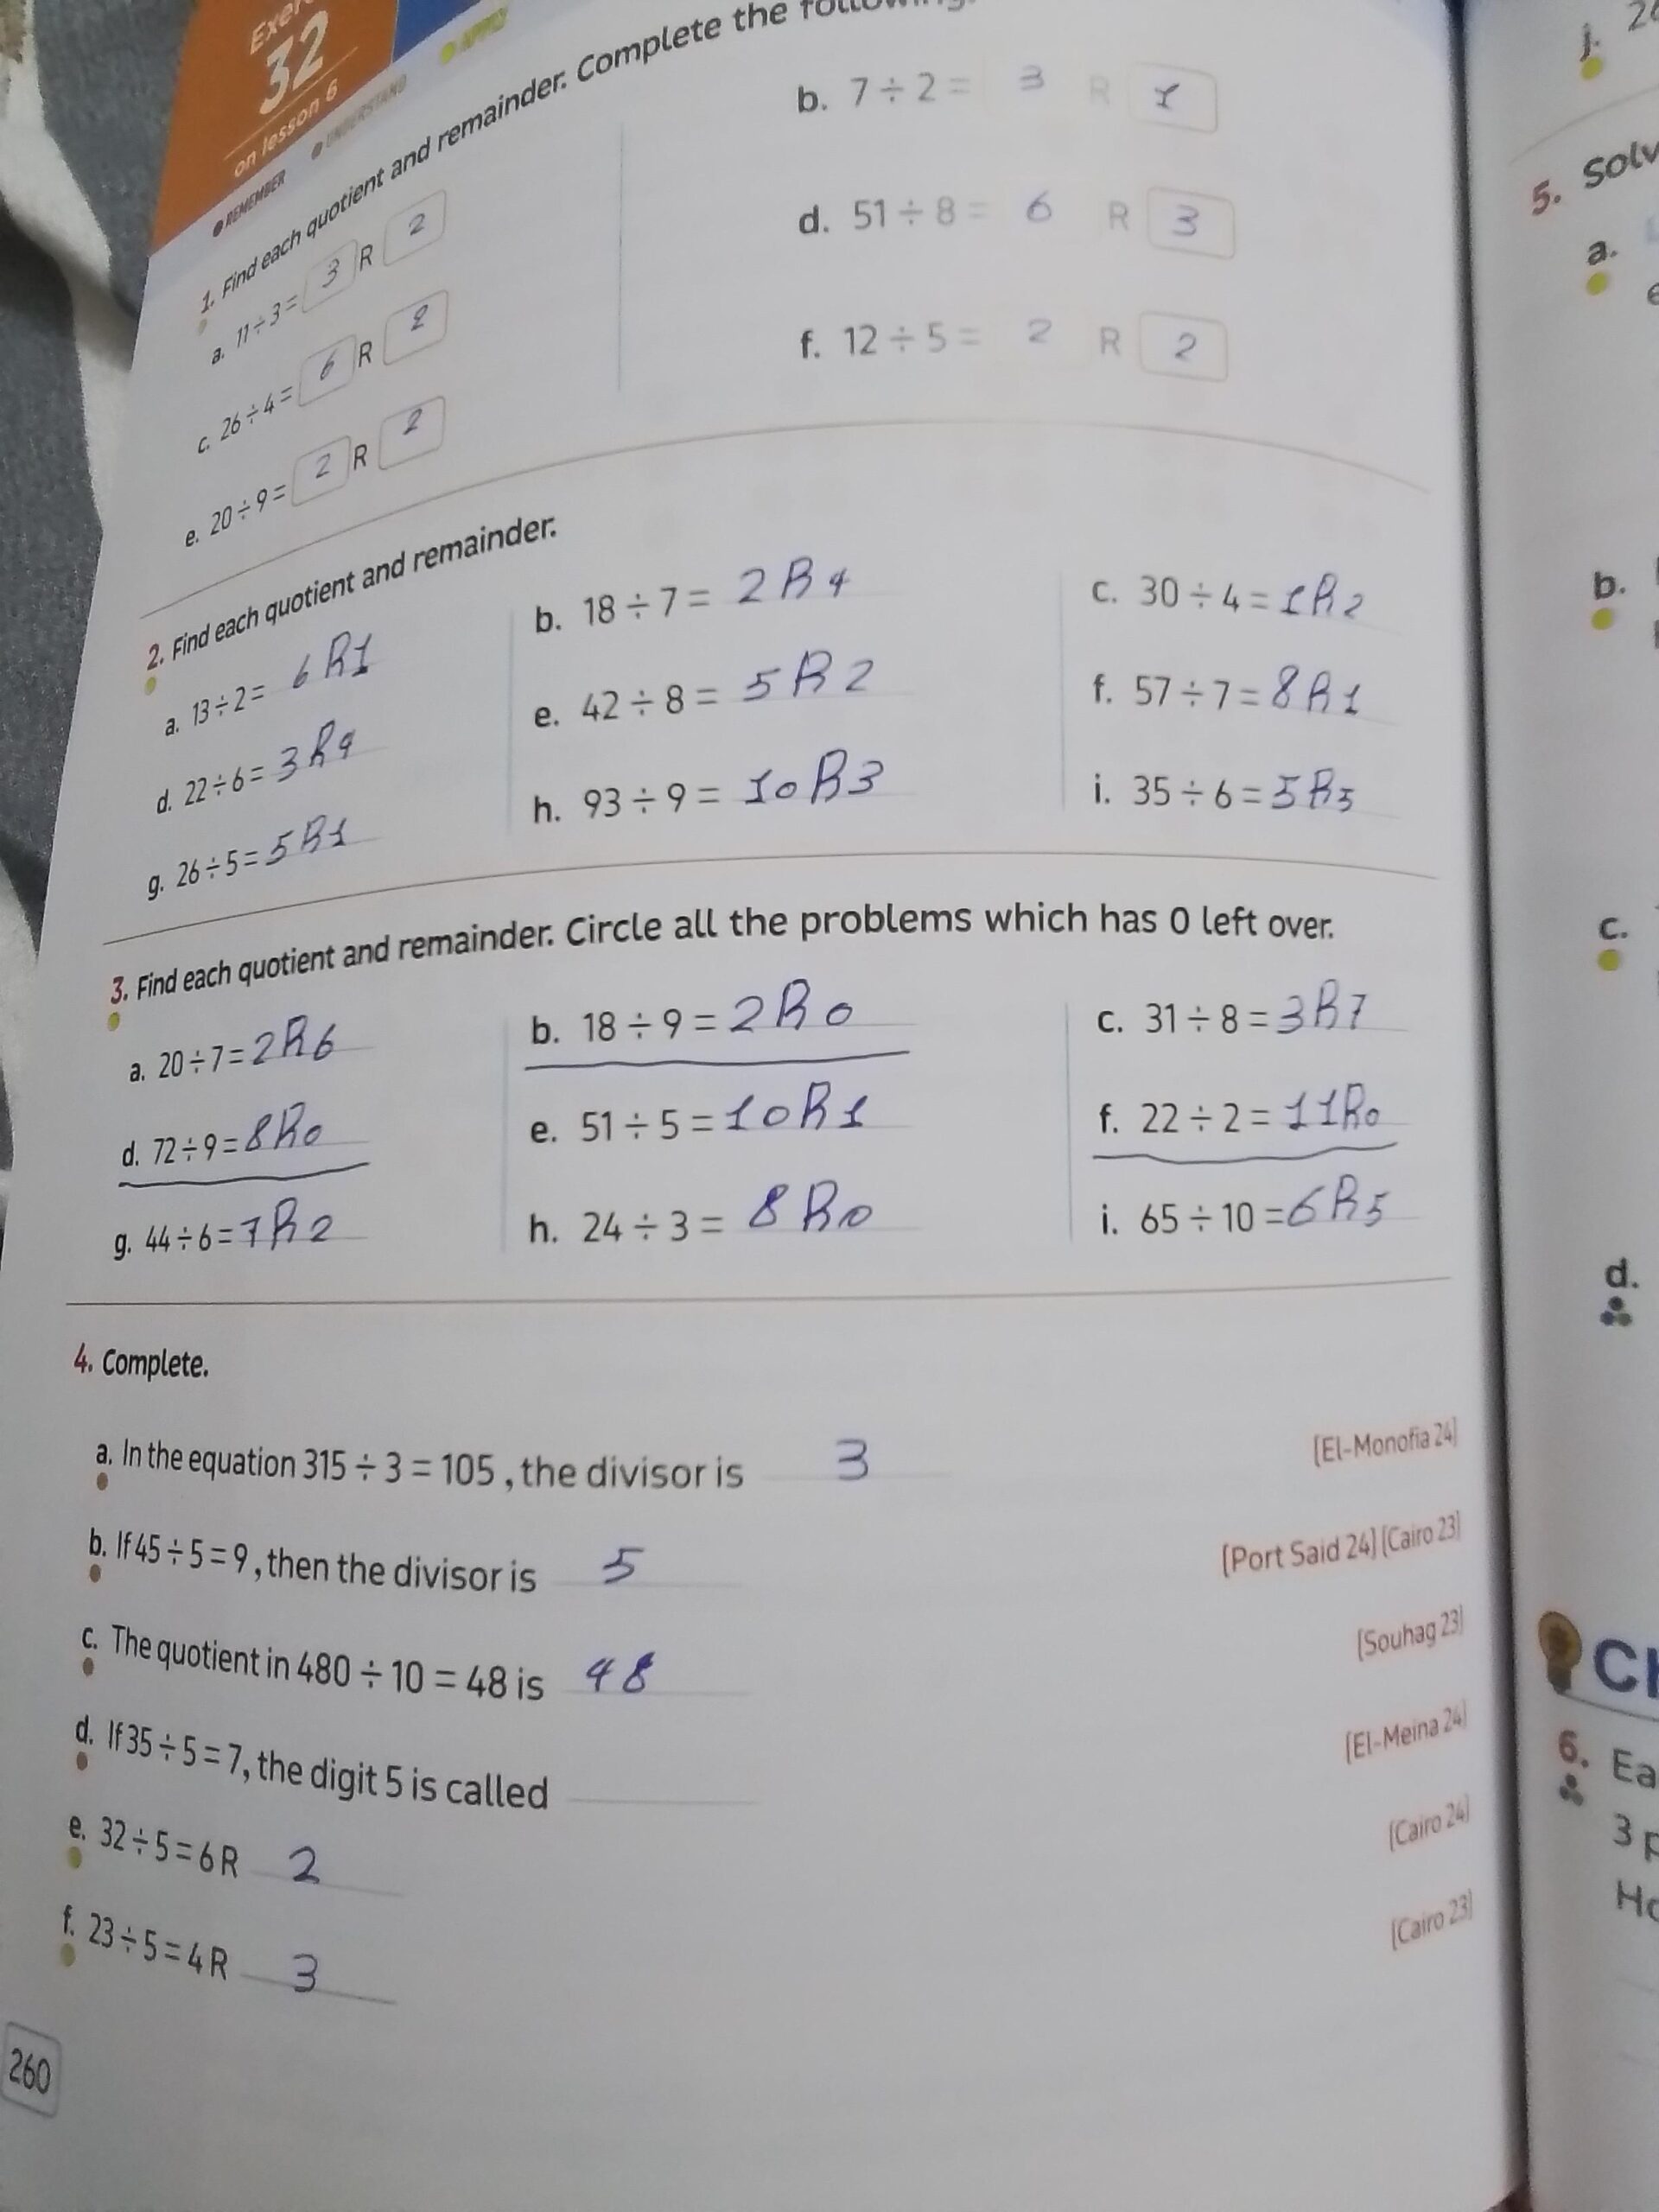 32
on lesson 6
REMEMBER
UNDERSTAND
APPLY
1. Find each quotient and remainder. Complete the following.
a. 11 ÷ 3 = 3 R 2
b. 7 ÷ 2 = 3 R 1
c. 26 ÷ 4 = 6 R 2
d. 51 ÷ 8 = 6 R 3
e. 20 ÷ 9 = 2 R 2
f. 12 ÷ 5 = 2 R 2
2. Find each quotient and remainder.
a. 13 ÷ 2 = 6 R1
b. 18 ÷ 7 = 2 R 4
c. 30 ÷ 4 = 1R2
d. 22 ÷ 6 = 3 R4
e. 42 ÷ 8 = 5 R 2
f. 57 ÷ 7 = 8 R 1
g. 26 ÷ 5 = 5 R1
h. 93 ÷ 9 = 10 R3
i. 35 ÷ 6 = 5 R5
3. Find each quotient and remainder. Circle all the problems which has 0 left over.
a. 20 ÷ 7 = 2R6
b. 18 ÷ 9 = 2 R 0
c. 31 ÷ 8 = 3 R7
d. 72 ÷ 9 = 8R0
e. 51 ÷ 5 = 10R1
f. 22 ÷ 2 = 11R0
g. 44 ÷ 6 = 7 R 2
h. 24 ÷ 3 = 8 R0
i. 65 ÷ 10 = 6R5
4. Complete.
a. In the equation 315 ÷ 3 = 105 , the divisor is 3 [El-Monofia 24]
b. If 45 ÷ 5 = 9 , then the divisor is 5 [Port Said 24] [Cairo 23]
c. The quotient in 480 ÷ 10 = 48 is 48 [Souhag 23]
d. If 35 ÷ 5 = 7, the digit 5 is called [El-Meina 24]
e. 32 ÷ 5 = 6 R 2 [Cairo 24]
f. 23 ÷ 5 = 4 R 3 [Cairo 23]
260
j.
5. Solv
a.
b.
c.
d.
6. Ea
3 p